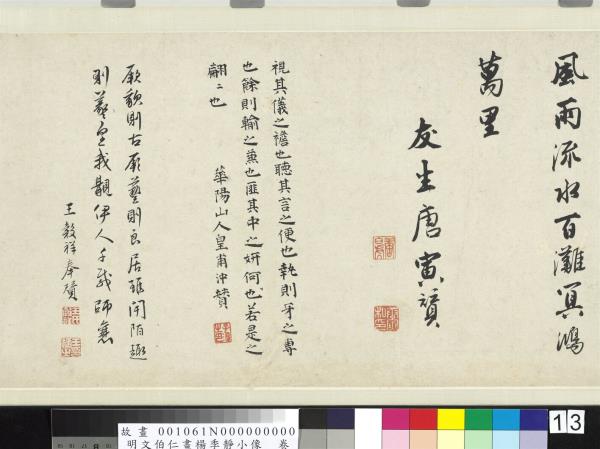 風雨流水百灘冥鴻
萬里
友生唐寅贊
視其儀之襜也聽其言之便也執則牙之專
也餘則輸之蕉也匪其中之妍何也若是之
翩〻也
華陽山人皇甫沖贊
厥貌則古厥藝則良居雖閈陌趣
則羲皇我覯伊人千載師襄
王穀祥奉贊
故畫001061N000000000
明文伯仁畫楊季靜小像 卷
13